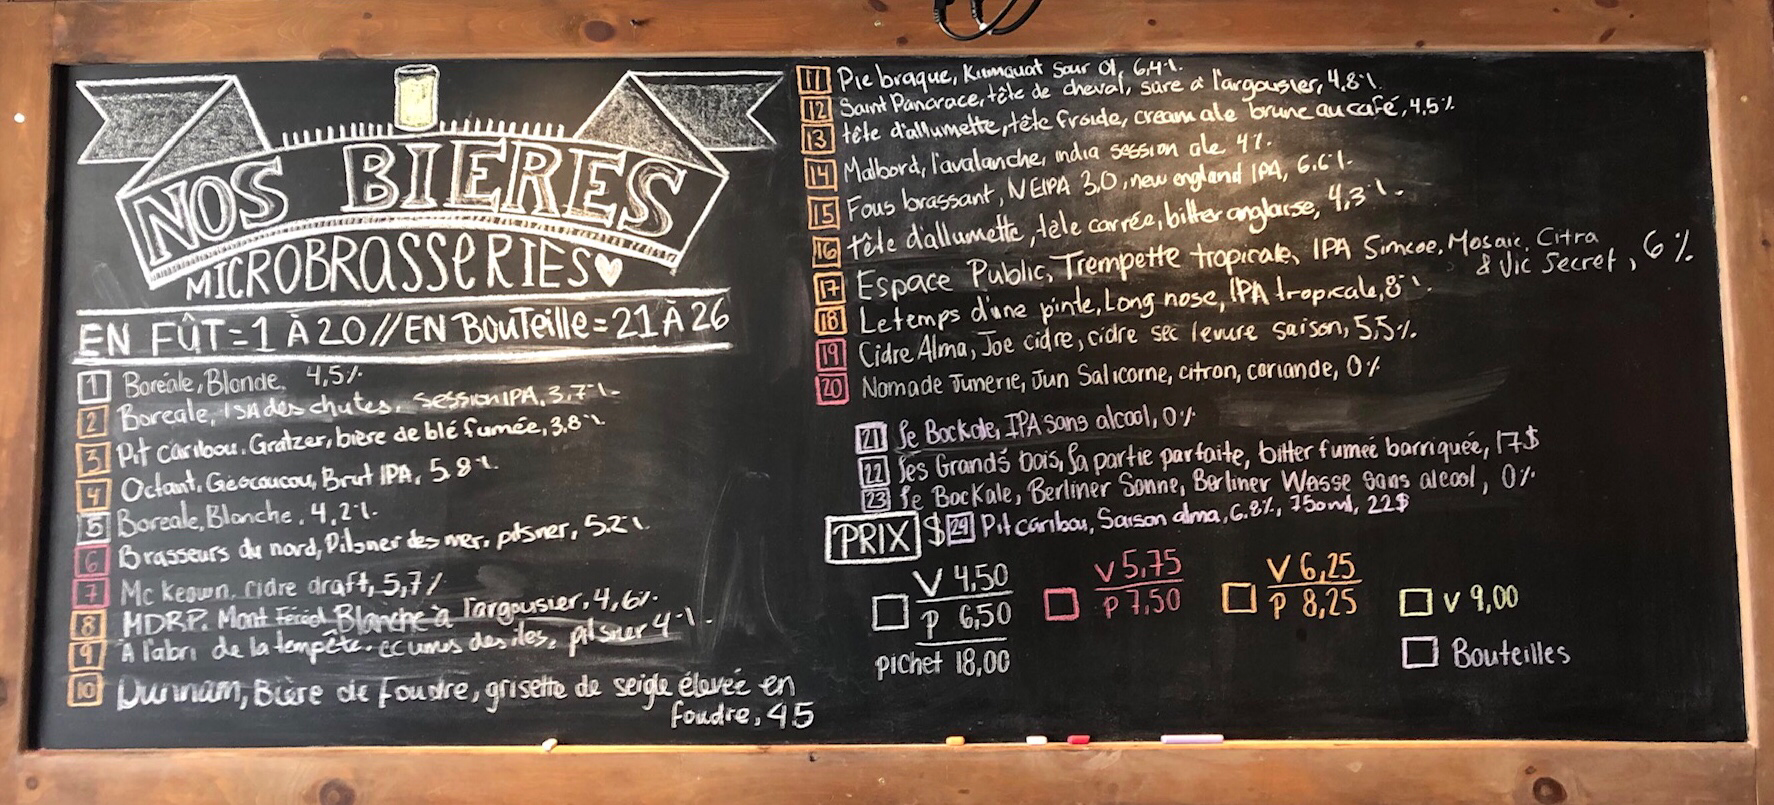 NOS BIERES
MICROBRASSERIES
EN FÛT = 1 À 20 // EN BOUTEILLE = 21 À 26
1 Boréale, Blonde, 4,5%
2 Boreale, ISA des chutes, session IPA, 3,7%
3 Pit caribou, Gratzer, bière de blé fumée, 3,8%
4 Octant, Geocoucou, Brut IPA, 5.8%
5 Boreale, Blanche, 4,2%
6 Brasseurs du nord, Pilsner des mer, pilsner, 5.2%
7 Mc keown, cidre draft, 5,7%
8 MDRP. Mont Blanche à l'argousier, 4,6%
9 A l'abri de la tempête, ecumes des iles, pilsner 4%
10 Dunham, Bière de Foudre, grisette de seigle élevée en
foudre, 4.5
11 Pie braque, Kumquat Sour 01, 6,4%
12 Saint Pancrace, tête de cheval, sure à l'argousier, 4,8%
13 tête d'allumette, tête froide, cream ale brune au café, 4,5%
14 Malbord, l'avalanche, india session ale 4%
15 Fous brassant, NEIPA 3.0, new england IPA, 6.6%
16 tête d'allumette, tête carrée, bitter anglaise, 4,3%
17 Espace Public, Trempette tropicale, IPA Simcoe, Mosaic, Citra
& Vic Secret, 6%
18 Le temps d'une pinte, Long nose, IPA tropicale, 8%
19 Cidre Alma, Joe cidre, cidre sec levure saison, 5,5%
20 Nomade Junerie, Jun Salicorne, citron, coriande, 0%
21 Le Bockale, IPA sans alcool, 0%
22 Les Grands bois, La partie parfaite, bitter fumée barriquée, 17$
23 Le Bockale, Berliner Sonne, Berliner Wesse sans alcool, 0%
24 Pit caribou, Saison alma, 6.8%, 750ml, 22$
PRIX $
V 4,50
P 6,50
pichet 18,00
V 5,75
P 7,50
V 6,25
P 8,25
V 9,00
Bouteilles